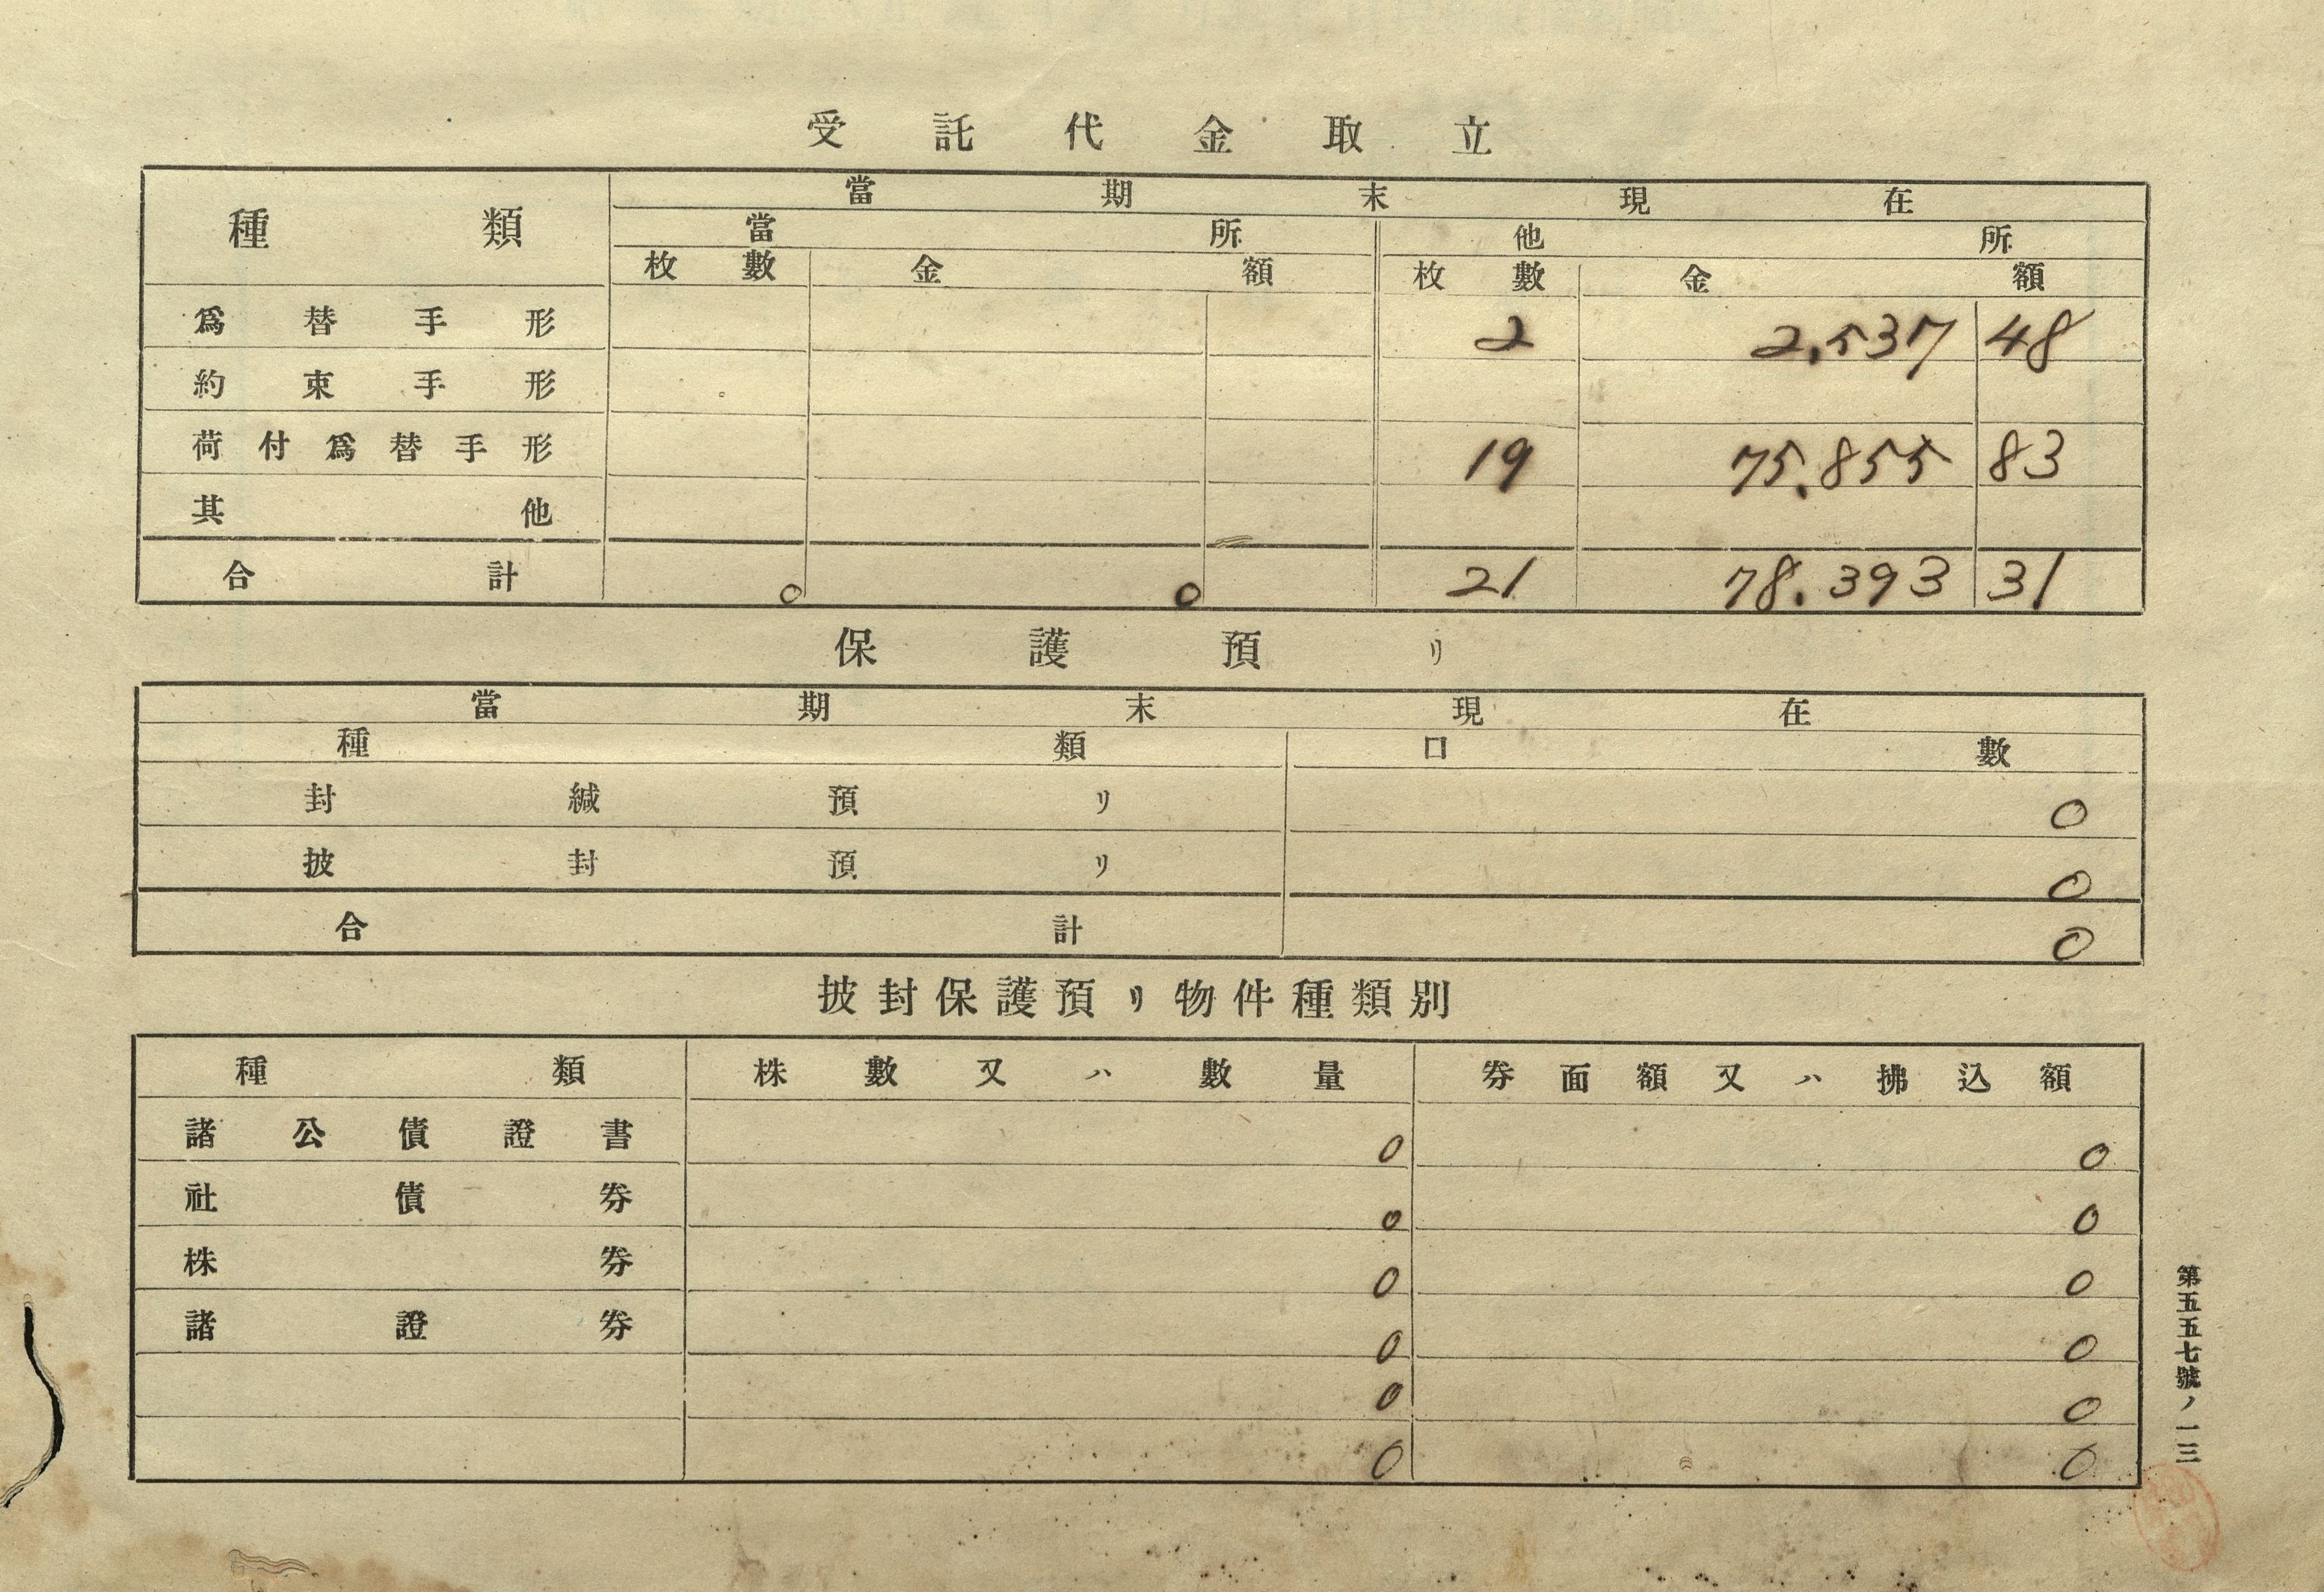 受託代金取立
種類 當期末現在
當所 他所
枚數 金額 枚數 金額
爲替手形 2 2,537 48
約束手形
荷付爲替手形 19 75,855 83
其他
合計 0 0 21 78,393 31
保護預リ
當期末現在
種類 口數
封緘預リ 0
披封預リ 0
合計 0
披封保護預リ物件種類別
種類 株數又ハ數量 券面額又ハ拂込額
諸公債證書 0 0
社債券 0 0
株券 0 0
諸證券 0 0
0 0
0 0
第五五七號ノ一三